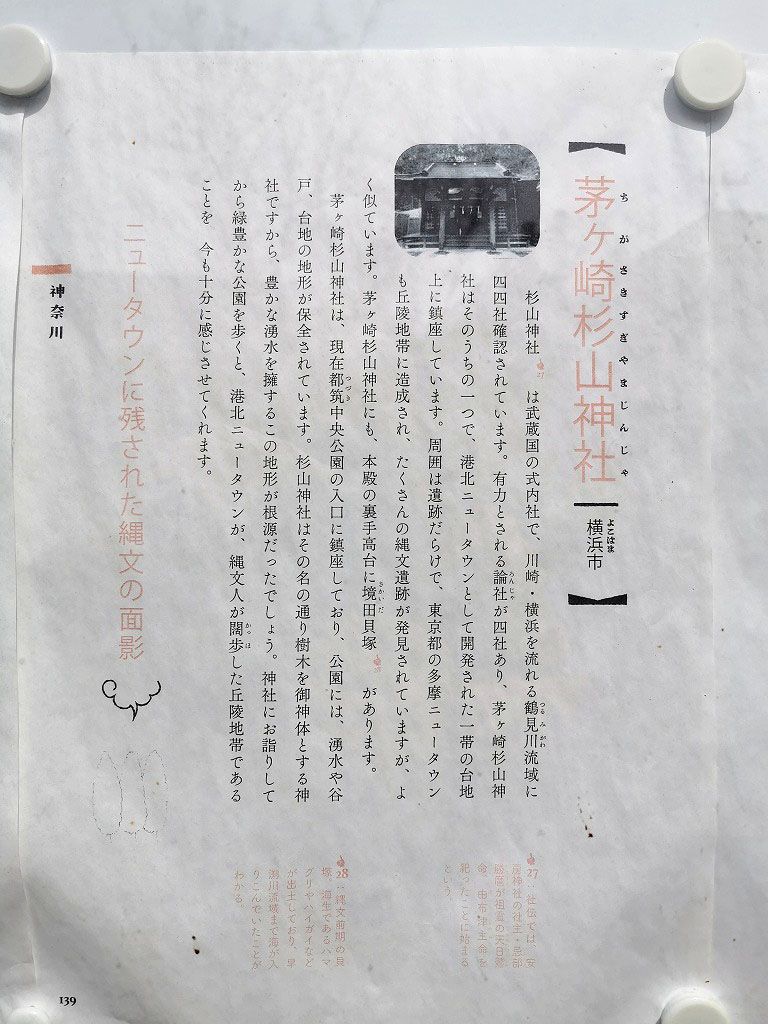 茅ヶ崎杉山神社
ちがさきすぎやまじんじゃ
横浜市
よこはま
杉山神社 27 は武蔵国の式内社で、川崎・横浜を流れる鶴見川流域に
つるみがわ
四四社確認されています。有力とされる論社が四社あり、茅ヶ崎杉山神
ろんじゃ
社はそのうちの一つで、港北ニュータウンとして開発された一帯の台地
上に鎮座しています。周囲は遺跡だらけで、東京都の多摩ニュータウン
も丘陵地帯に造成され、たくさんの縄文遺跡が発見されていますが、よ
く似ています。茅ヶ崎杉山神社にも、本殿の裏手高台に境田貝塚 28 があります。
さかいだ
茅ヶ崎杉山神社は、現在都筑中央公園の入口に鎮座しており、公園には、湧水や谷
つづき
戸、台地の地形が保全されています。杉山神社はその名の通り樹木を御神体とする神
社ですから、豊かな湧水を擁するこの地形が根源だったでしょう。神社にお詣りして
から緑豊かな公園を歩くと、港北ニュータウンが、縄文人が闊歩した丘陵地帯である
かっぽ
ことを、今も十分に感じさせてくれます。
ニュータウンに残された縄文の面影
神奈川
27：社伝では、安
房神社の社主・忌部
勝麿が祖の天日鷲
命、由布津主命を
祀ったことに始まる
という。
28：縄文前期の貝
塚。海生であるハマ
グリやハイガイなど
が出土しており、早
渕川流域まで海が入
りこんでいたことが
わかる。
139